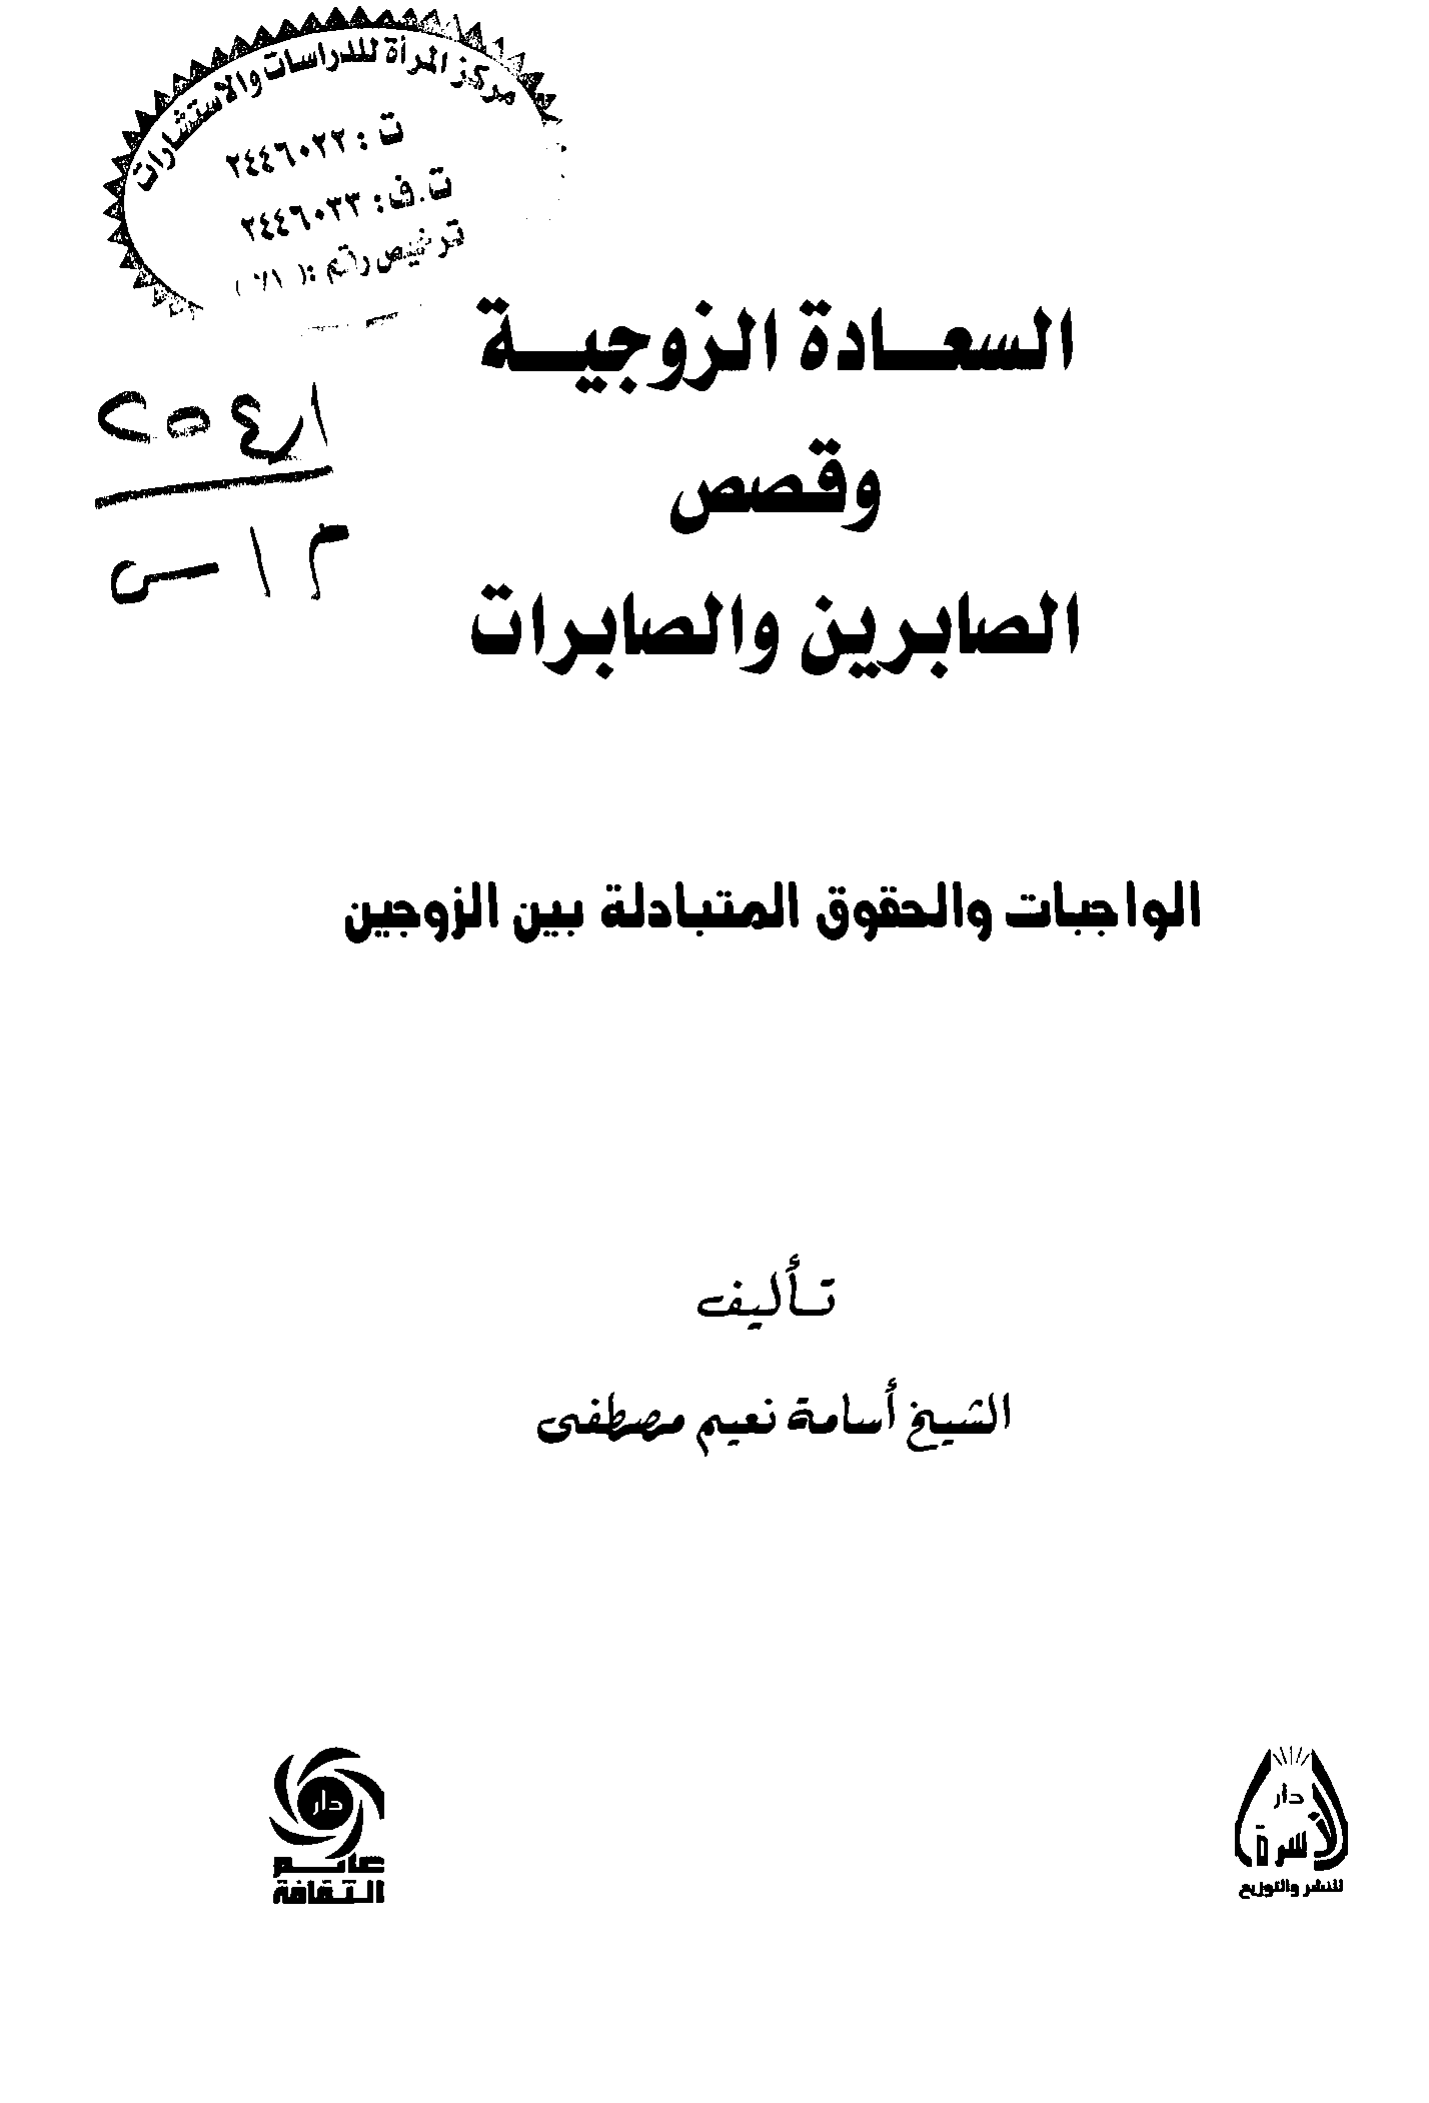 مركز المرأة للدراسات والاستشارات
ت : ٢٤٤٦٠٢٢
ت.ف: ٢٤٤٦٠٣٣
ترخيص رقم :
السعادة الزوجية
وقصص
الصابرين والصابرات
الواجبات والحقوق المتبادلة بين الزوجين
تأليف
الشيخ أسامة نعيم مصطفى
دار
الأسرة
للنشر والتوزيع
دار
عالم
الثقافة